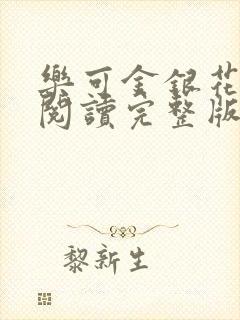 樂可金銀花
閱讀完整版
黎新生